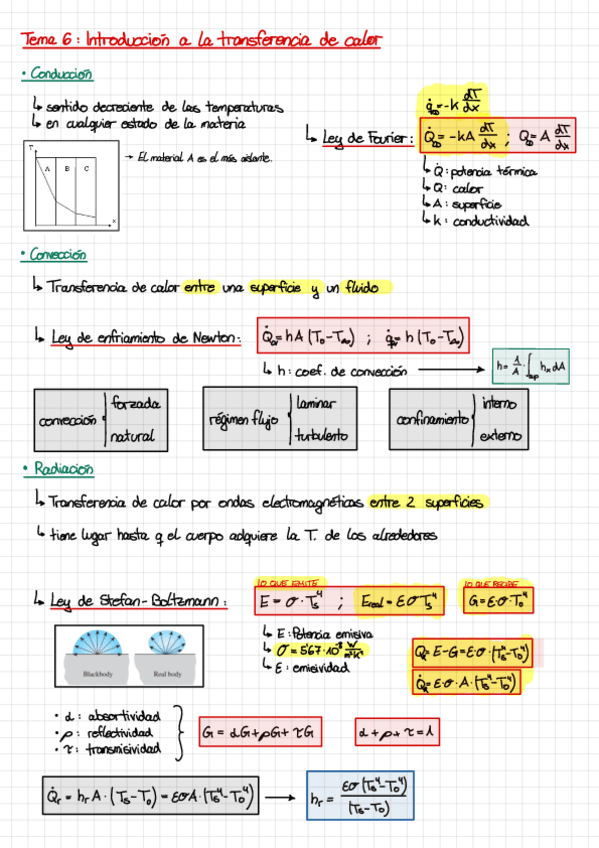 Tema 6: Introducción a la transferencia de calor
• Conducción
↳ sentido decreciente de las temperaturas
↳ en cualquier estado de la materia
T
A B C
x
→ El material A es el más aislante.
q̇ = -k dT/dx
↳ Ley de Fourier: Q̇ = -kA dT/dx ; Q = A dT/dx
↳ Q̇: potencia térmica
↳ Q: calor
↳ A: superficie
↳ k: conductividad
• Convección
↳ Transferencia de calor entre una superficie y un fluido
↳ Ley de enfriamiento de Newton: Q̇ = hA (T₀-T∞) ; q̇ = h (T₀-T∞)
↳ h: coef. de convección → h = A/A · ∫ hₓ dA
convección forzada natural
régimen flujo laminar turbulento
confinamiento interno externo
• Radiación
↳ Transferencia de calor por ondas electromagnéticas entre 2 superficies
↳ tiene lugar hasta q el cuerpo adquiere la T. de los alrededores
LO QUE EMITE
LO QUE RECIBE
↳ Ley de Stefan-Boltzmann: E = σ·Ts⁴ ; Ereal = εσTs⁴
G = ε·σ·T₀⁴
↳ E: Potencia emisiva
↳ σ = 5'67·10⁻⁸ W/m²K⁴
↳ ε: emisividad
Q̇R = E-G = ε·σ·(Ts⁴-T₀⁴)
Q̇R = ε·σ·A·(Ts⁴-T₀⁴)
Blackbody
Real body
• α: absortividad
• ρ: reflectividad
• τ: transmisividad
G = αG+ρG+τG
α+ρ+τ=1
Q̇r = hr A·(Ts-T₀) = εσA·(Ts⁴-T₀⁴) → hr = εσ(Ts⁴-T₀⁴)/(Ts-T₀)